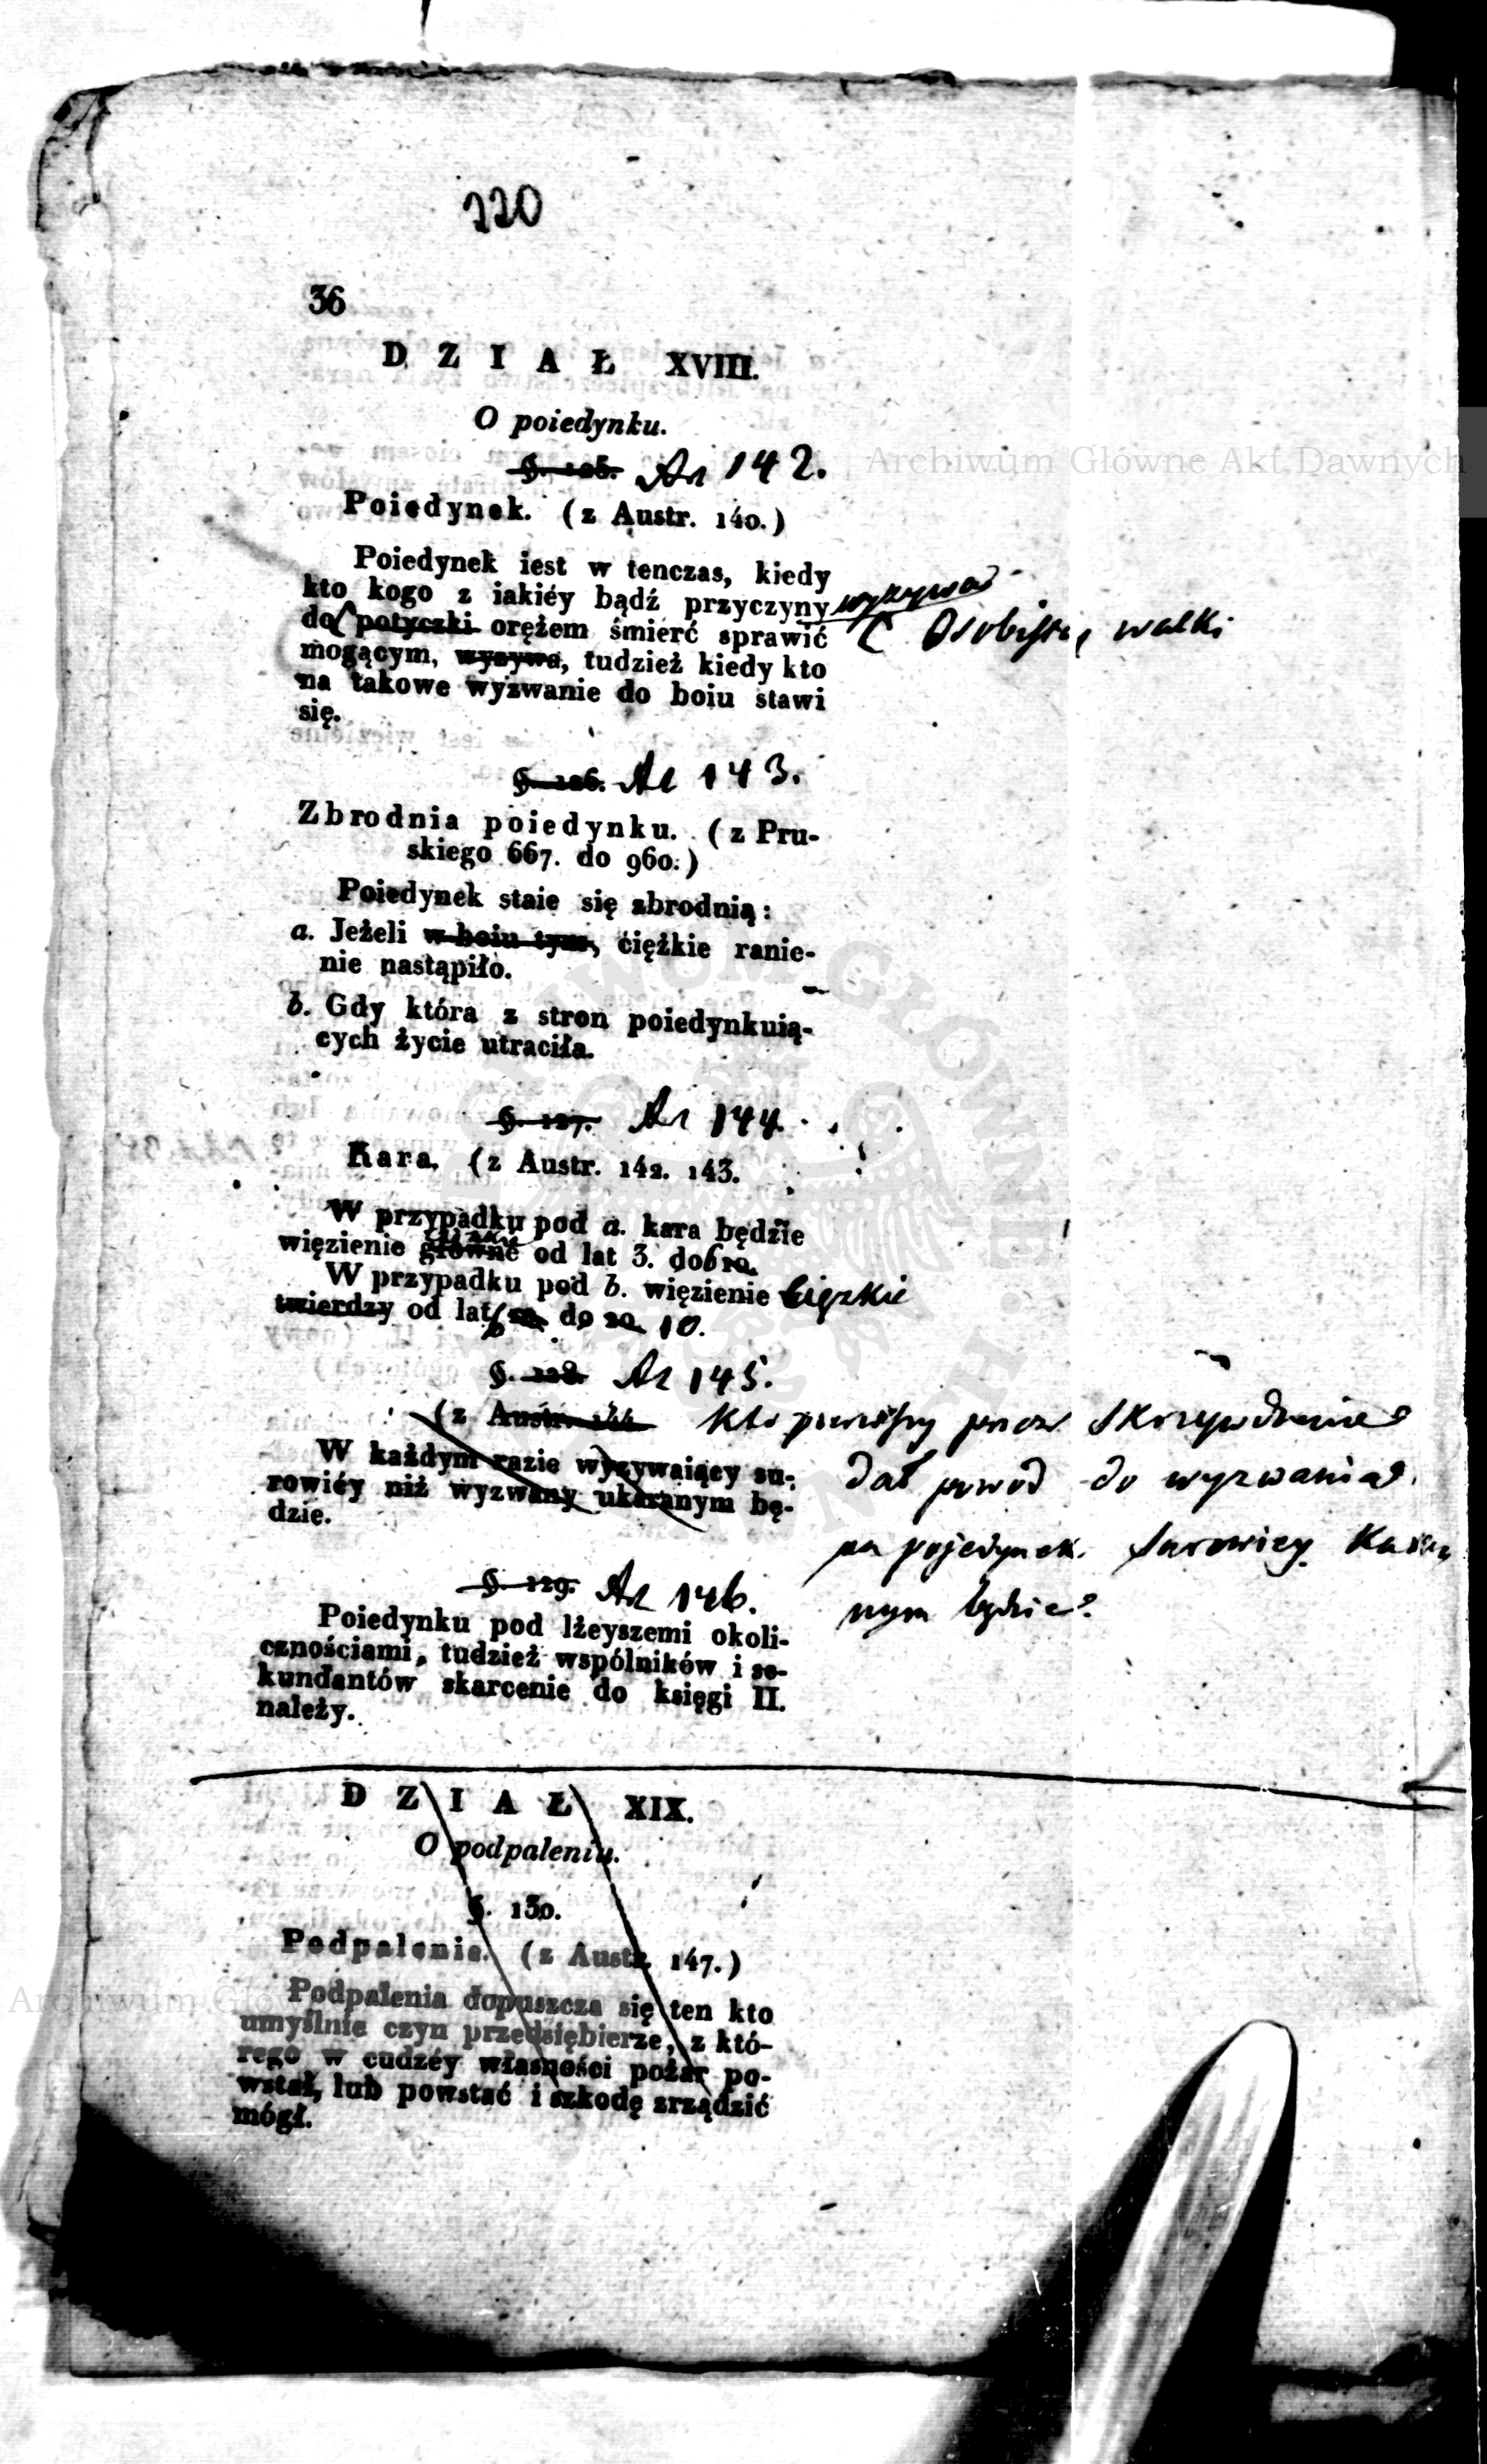 220
36
DZIAŁ XVIII.
O poiedynku.
§. 125. Ar 142.
Archiwum Główne Akt Dawnych
Poiedynek. (z Austr. 140.)
Poiedynek iest w tenczas, kiedy
kto kogo z iakiéy bądź przyczyny wyzywa
do potyczki orężem śmierć sprawić osobistey walki
mogącym, wyzywa, tudzież kiedy kto
na takowe wyzwanie do boiu stawi
się.
§. 126. Ar 143.
Zbrodnia poiedynku. (z Pru-
skiego 667. do 960.)
Poiedynek staie się zbrodnią:
a. Jeżeli w boiu tym, ciężkie ranie-
nie nastąpiło.
b. Gdy która z stron poiedynkuią-
cych życie utraciła.
§. 127. Ar 144.
Kara. (z Austr. 142. 143.
W przypadku pod a. kara będzie
więzienie główne od lat 3. do 6 10.
W przypadku pod b. więzienie Cięzkie
twierdzy od lat 6 do 20. 10.
§. 128. Ar 145.
(z Austr. 144 Kto pierwszy przez skrzywdzenie
W każdym razie wyzywaiący su- dał powod do wyzwania
rowiéy niż wyzwany ukaranym bę-
dzie. na pojedynek surowiey kara
nym będzie
§. 129. Ar 146.
Poiedynku pod lżeyszemi okoli-
cznościami, tudzież wspólników i se-
kundantów skarcenie do księgi II.
należy.
DZIAŁ XIX.
O podpaleniu.
§. 130.
Podpalenie. (z Austr. 147.)
Archiwum Główne
Podpalenia dopuszcza się ten kto
umyślnie czyn przedsiębierze, z któ-
rego w cudzéy własności pożar po-
wstał, lub powstać i szkodę zrządzić
mógł.